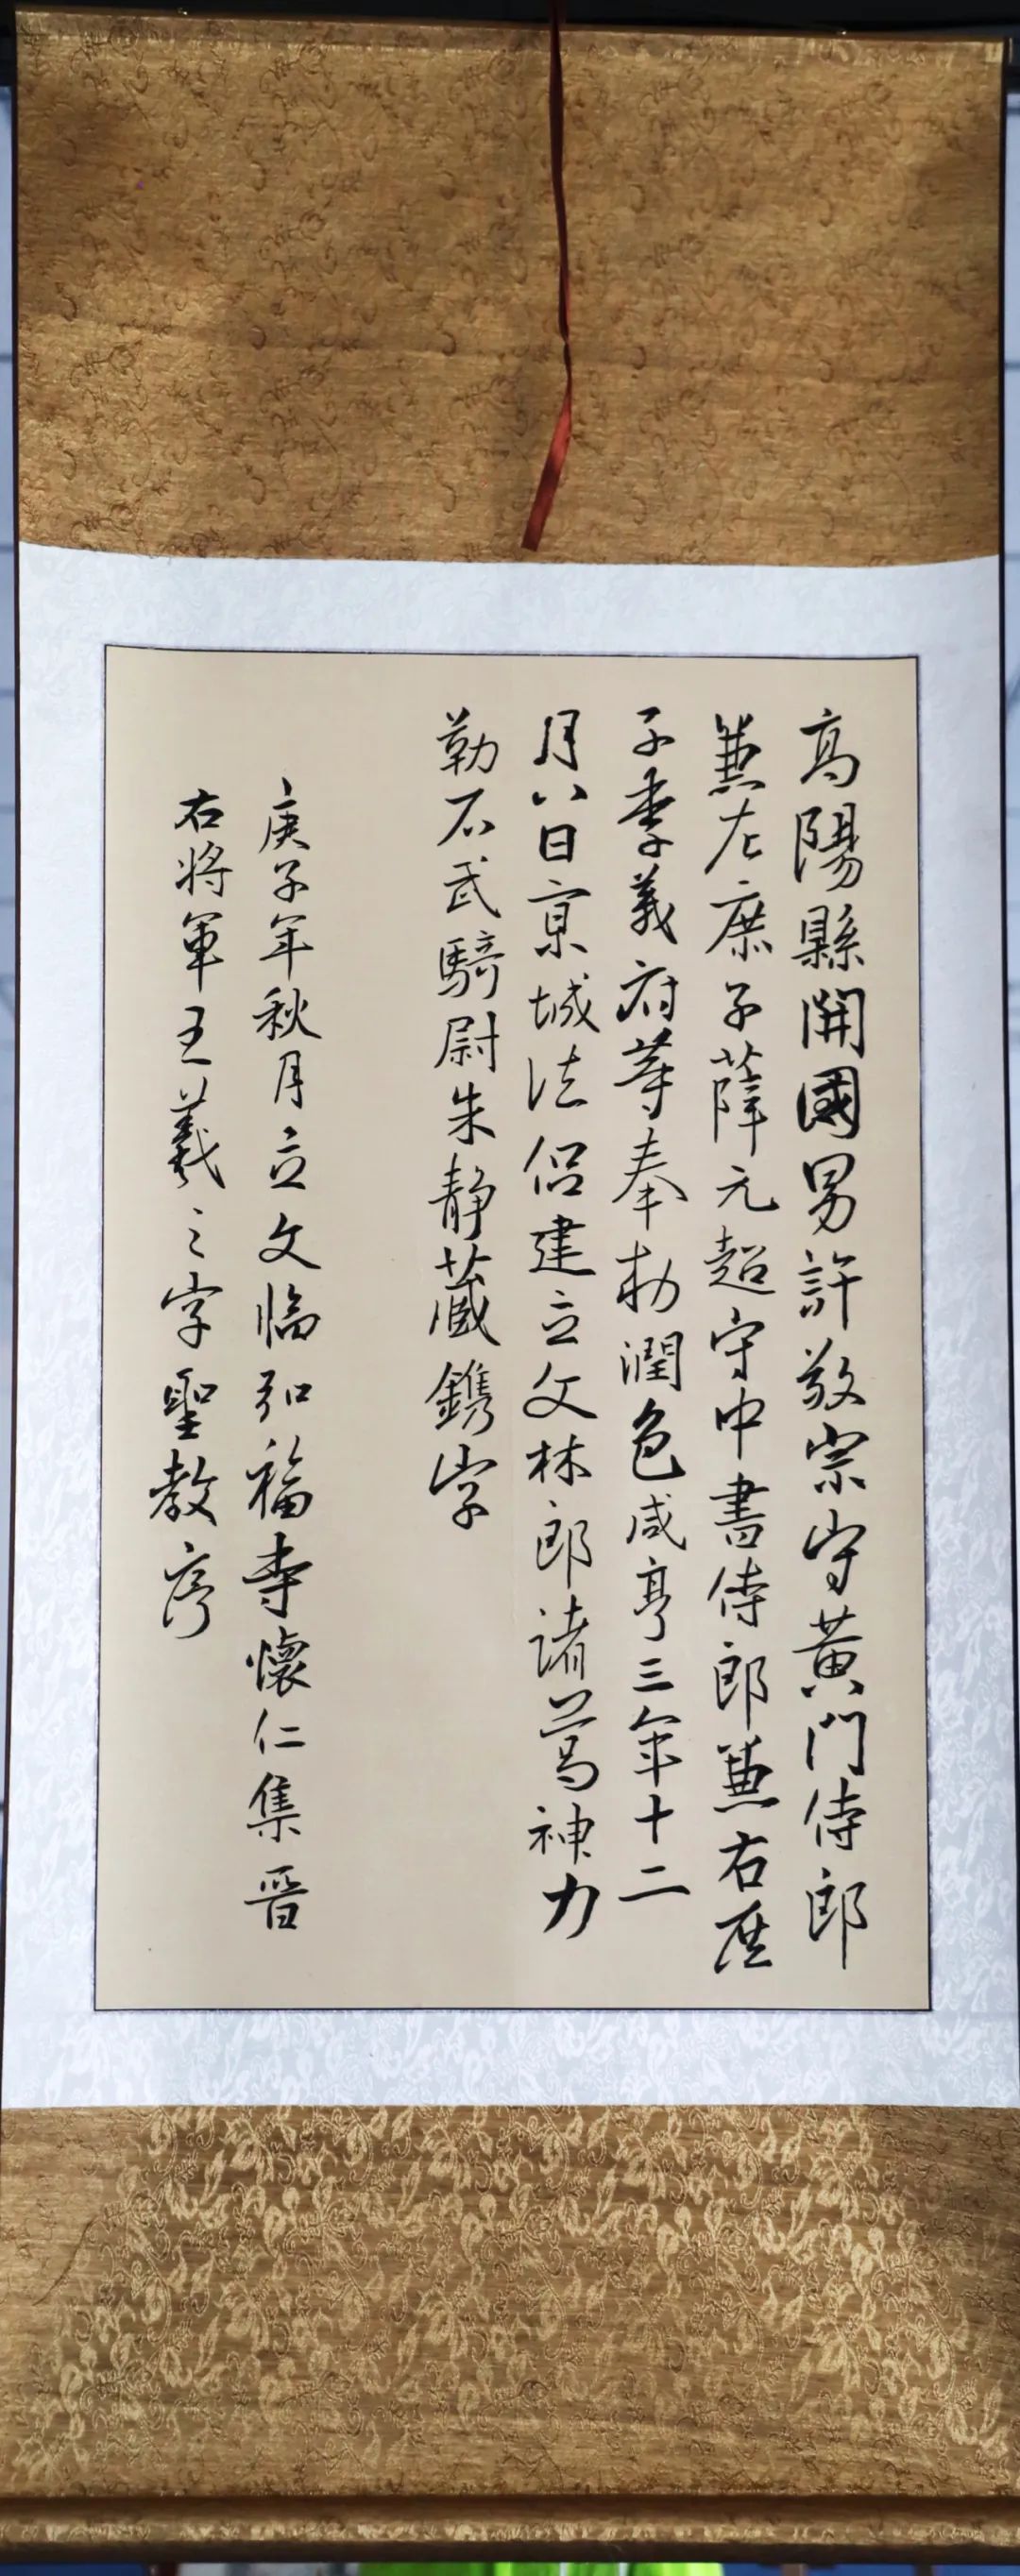 高陽縣開國男許敬宗守黃門侍郎
兼左庶子薛元超守中書侍郎兼右庶
子李義府等奉勅潤色咸亨三年十二
月八日京城法侶建立文林郎諸葛神力
勒石武騎尉朱静藏鐫字
庚子年秋月立文臨弘福寺懷仁集晉
右将軍王羲之字聖教序